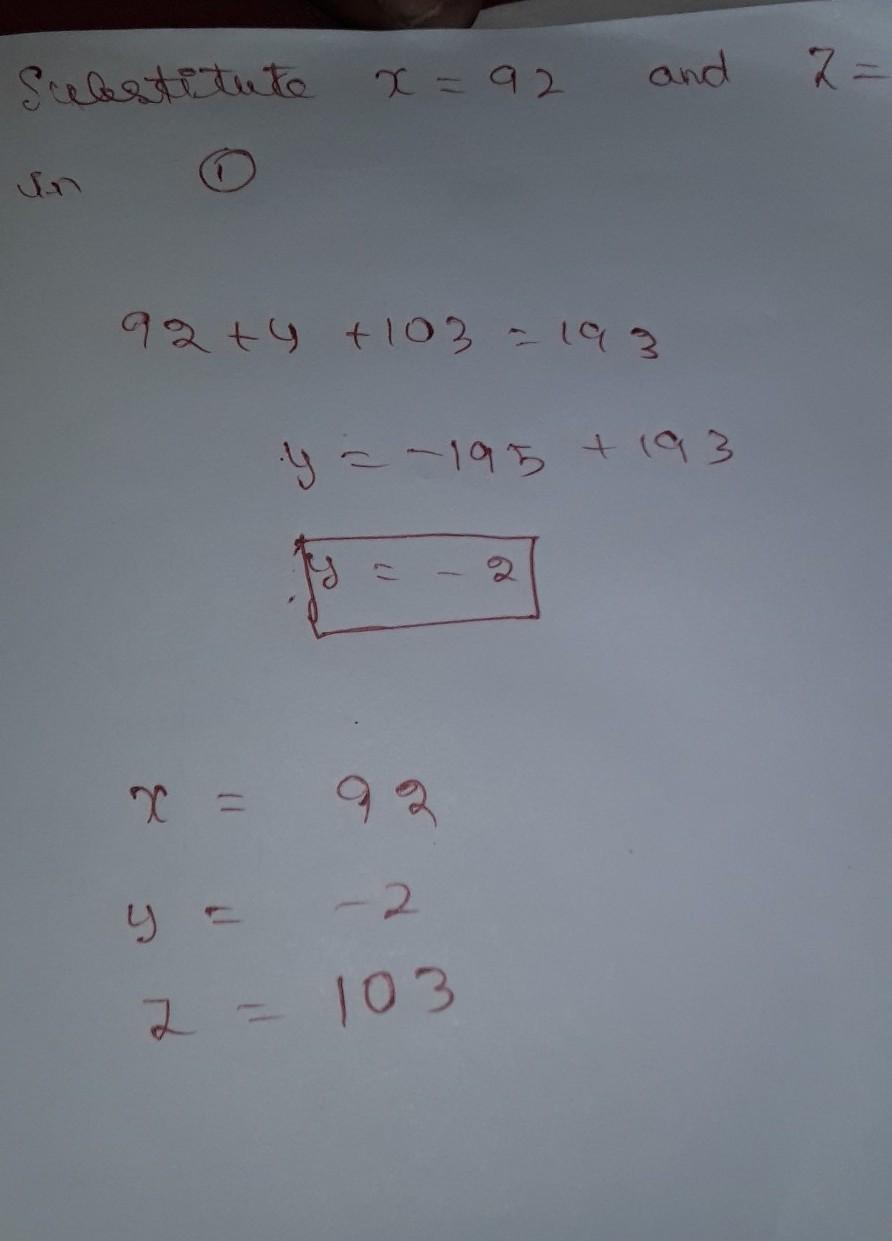 Substitute x = 92 and z =
in ①
92 + y + 103 = 193
y = -195 + 193
y = - 2
x = 92
y = -2
z = 103